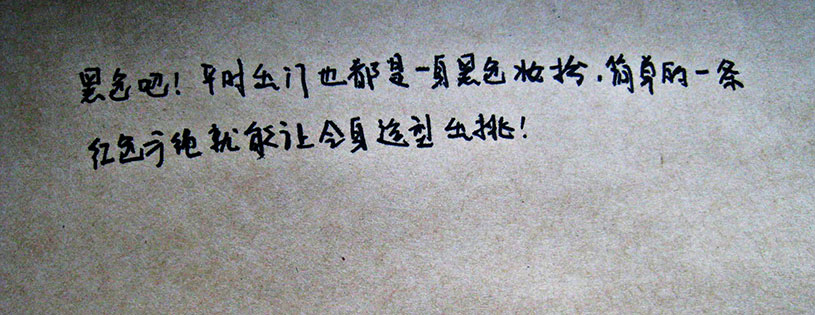 黑色吧！平时出门也都是一身黑色妆扮，简单的一条
红色手绳就能让全身造型出挑！